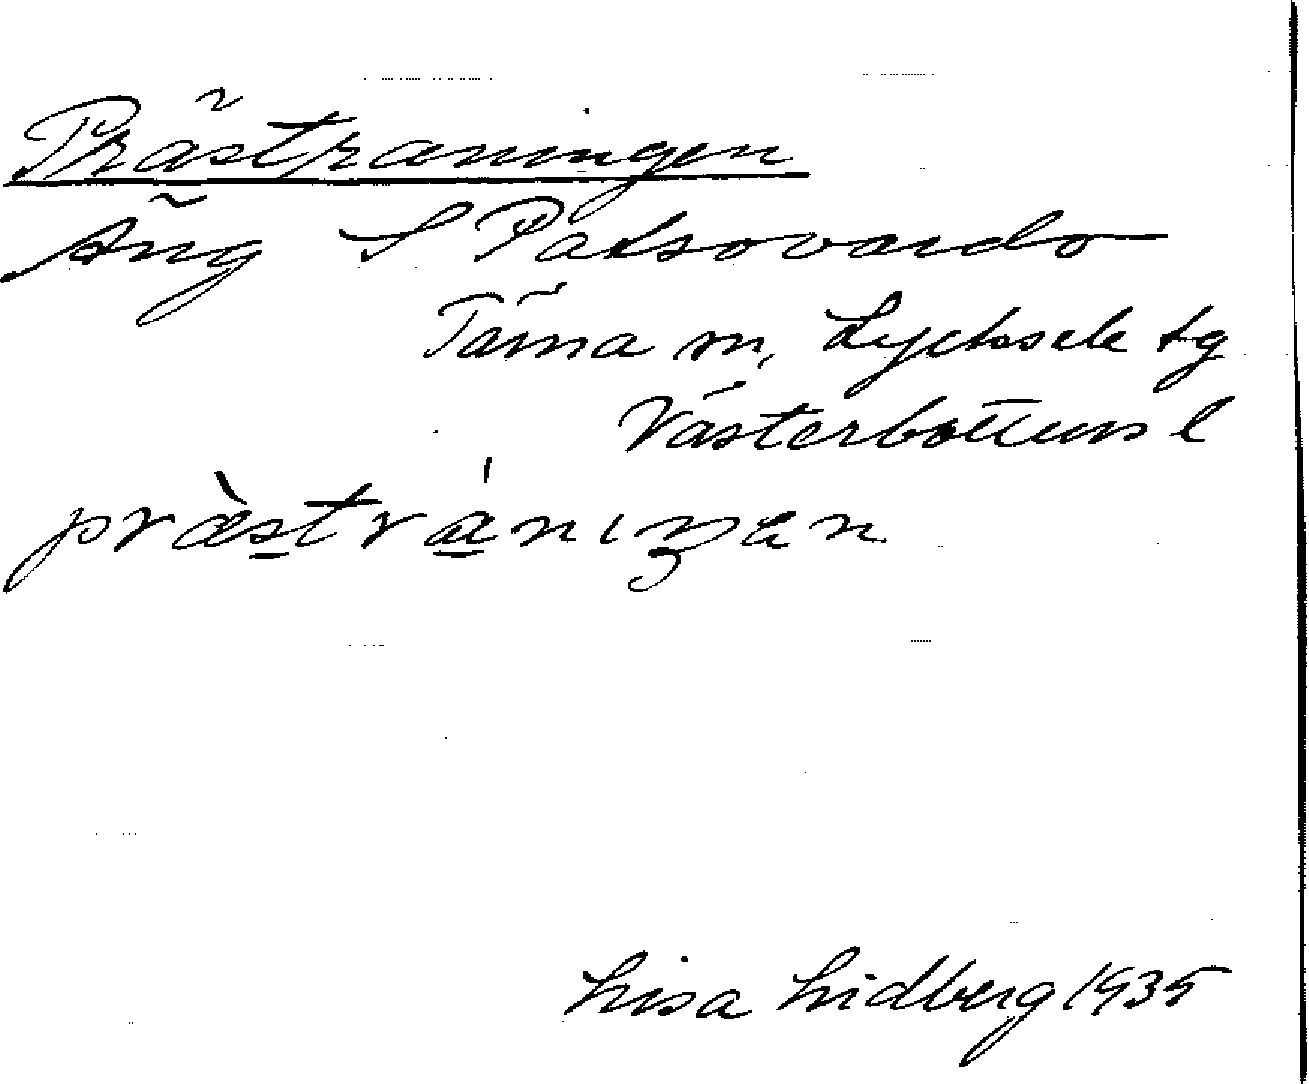 Prästraningen
Äng S Paksovardo
Tärna sn, Lycksele tg
Västerbottens l
præ̀strániŋen
Lisa Lidberg 1935